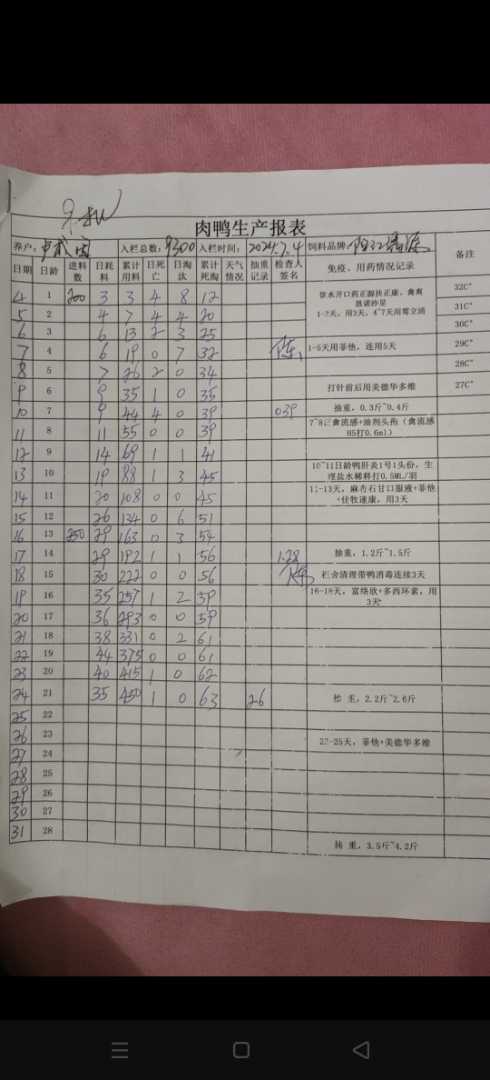 肉鸭生产报表
养户: 入栏总数: 9300 入栏时间: 2024.7.4 饲料品牌:
日期 日龄 进料数 日耗料 累计用料 日死亡 日淘汰 累计死淘 天气情况 抽重记录 检查人签名 免疫、用药情况记录 备注
4 1 200 3 3 4 8 12 32C°
5 2 4 7 4 4 20 1-3天,用3天,4~7天 31C°
6 3 6 13 2 3 25 30C°
7 4 6 19 0 7 32 1-5天用菲他,连用5天 29C°
8 5 7 26 2 0 34 28C°
9 6 9 35 1 0 35 打针前后用美德华多维 27C°
10 7 9 44 4 0 39 039 抽重,0.3斤~0.4斤
11 8 11 55 0 0 39 禽流感+油剂头孢(禽流感H5打0.6ml)
12 9 14 69 1 1 41
13 10 19 88 1 3 45 10~11日龄鸭肝炎1号1头份,生理盐水稀释打0.5ML/羽
14 11 20 108 0 0 45 11-13天,麻杏石甘口服液+菲他+佳牧速康,用3天
15 12 26 134 0 6 51
16 13 250 29 163 0 3 54
17 14 29 192 1 1 56 1.28 抽重,1.2斤~1.5斤
18 15 30 222 0 0 56 栏舍清理带鸭消毒连续3天
19 16 35 257 1 2 59 16-18天,富络欣+多西环素,用3天
20 17 36 293 0 0 59
21 18 38 331 0 2 61
22 19 44 375 0 0 61
23 20 40 415 1 0 62
24 21 35 450 1 0 63 26 抽重,2.2斤~2.6斤
25 22
26 23 25天,菲他+美德华多维
27 24
28 25
29 26
30 27
31 28 抽重,3.5斤~4.2斤